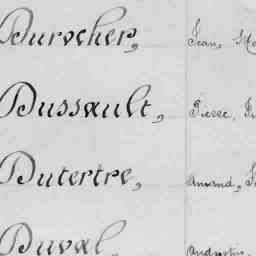 Durocher, Jean,
Dussault, Pierre,
Dutertre, Armand,
Duval,